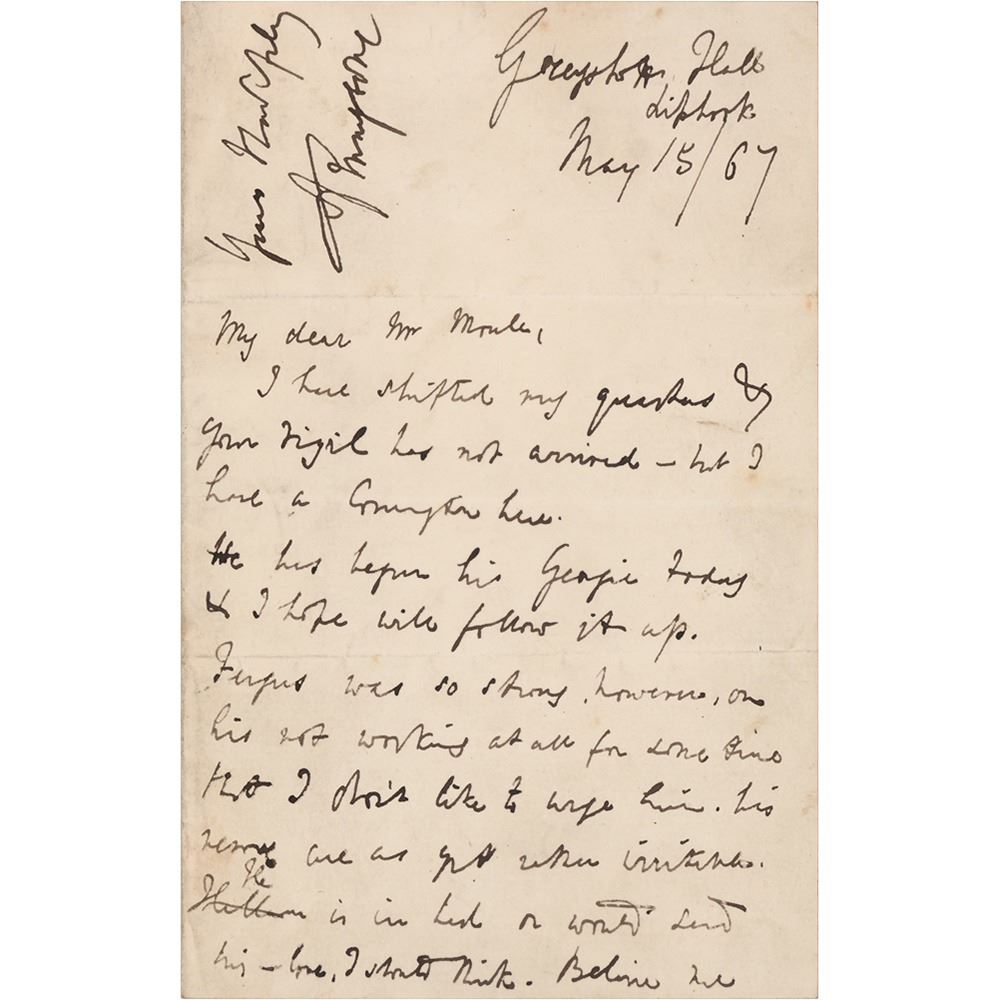 Greyshott Hall
Liphook
May 15/67
My dear Mr Moule,
I have shifted my quarters &
your Virgil has not arrived – but I
have a Conington here.
He has begun his Georgic today
& I hope will follow it up.
Fergus was so strong, however, on
his not working at all for some time
that I don't like to urge him. his
nerves are as yet rather irritable.
He
is in bed or would send
his – love, I should think. Believe me
Yours
A Tennyson